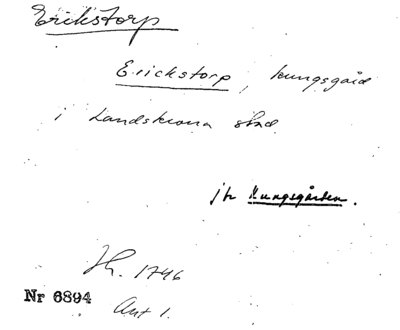 Erickstorp
Erickstorp, kungsgård
i Landskrona stad
jfr Kungsgården.
Jh. 1746
Nr 6894
Ant 1.